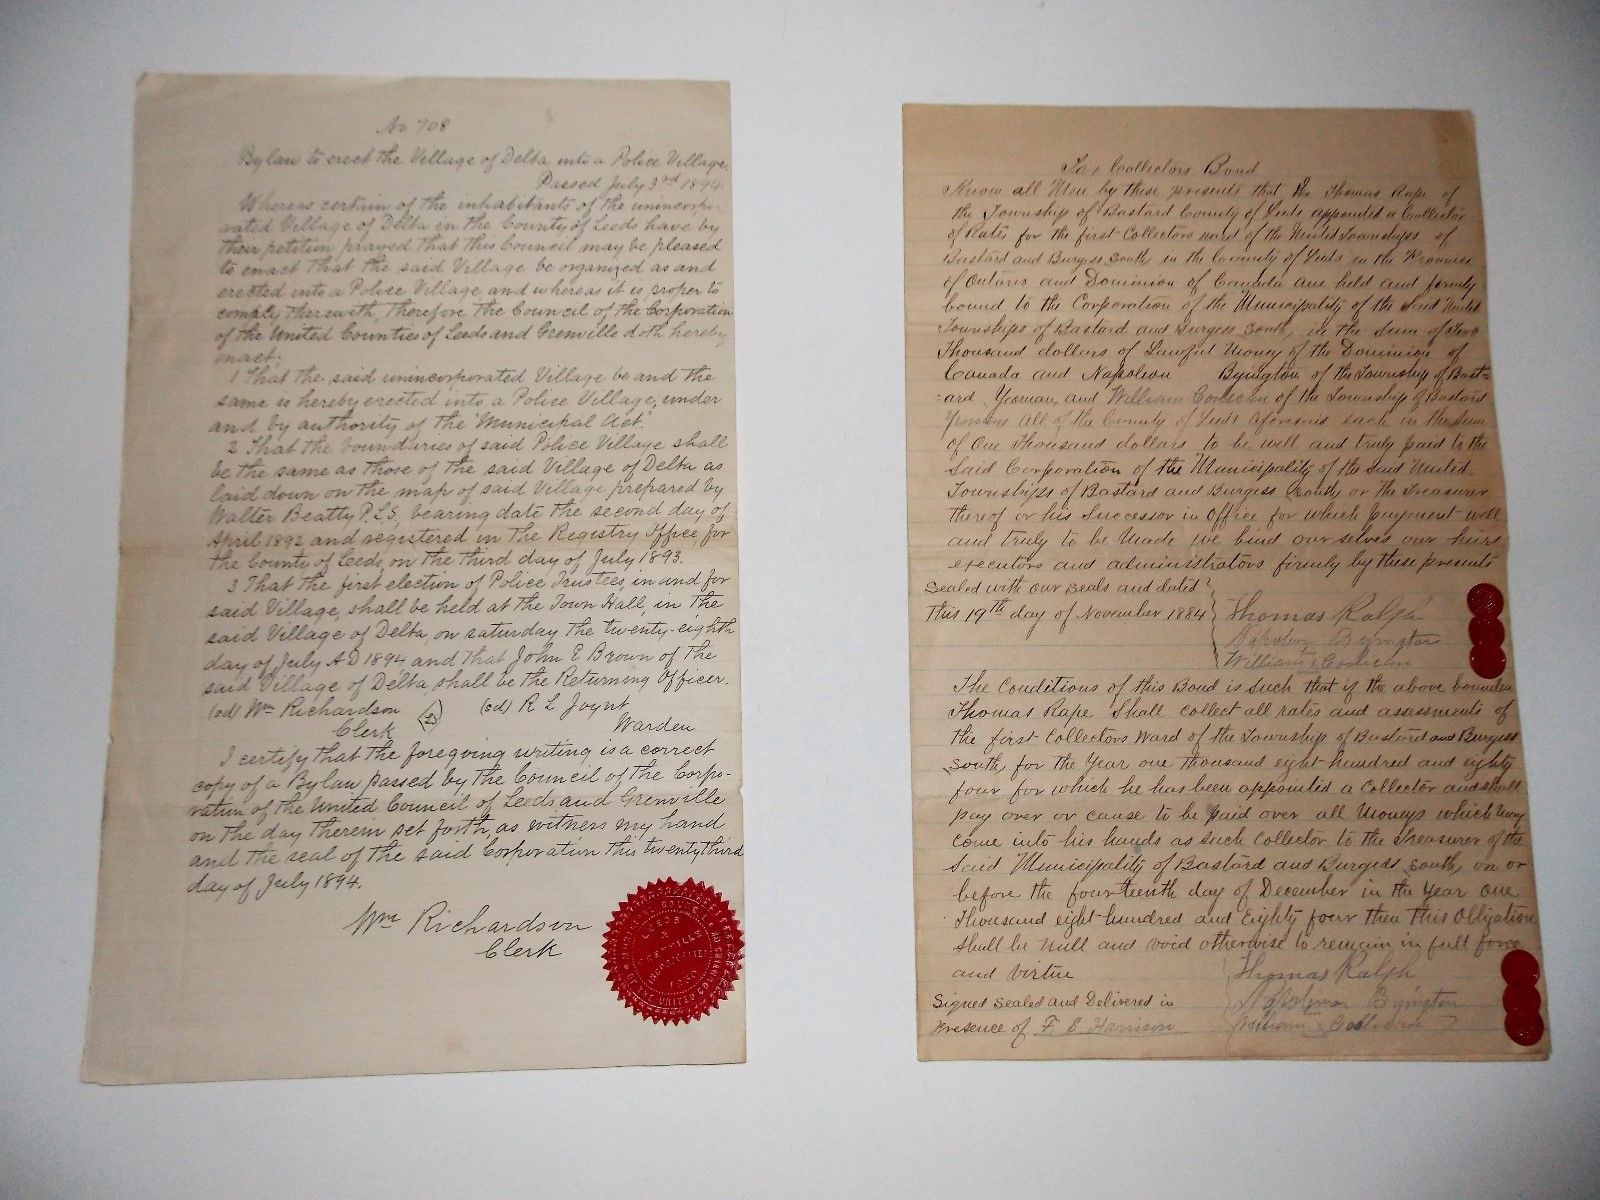 No 708
By law to erect the Village of Delta into a Police Village.
Passed July 3rd 1894.
Whereas certain of the inhabitants of the unincorpo-
rated Village of Delta in the County of Leeds have by
their petition prayed that this Council may be pleased
to enact that the said Village be organized as and
erected into a Police Village and whereas it is proper to
comply therewith, therefore the Council of the Corporation
of the United Counties of Leeds and Grenville doth hereby
enact:
1 That the said unincorporated Village be and the
same is hereby erected into a Police Village, under
and by authority of the "Municipal Act."
2 That the boundaries of said Police Village shall
be the same as those of the said Village of Delta as
laid down on the map of said Village prepared by
Walter Beatty P.L.S, bearing date the second day of
April 1892 and registered in the Registry Office, for
the County of Leeds, on the third day of July 1893.
3 That the first election of Police Trustees, in and for
said Village, shall be held at the Town Hall, in the
said Village of Delta, on saturday the twenty-eighth
day of July A D 1894 and that John E Brown of the
said Village of Delta, shall be the Returning Officer.
Wm Richardson
Clerk
R L Joynt
Warden
I certify that the foregoing writing is a correct
copy of a Bylaw passed by the Council of the Corpo-
ration of the United Council of Leeds and Grenville
on the day therein set forth, as witness my hand
and the seal of the said Corporation this twenty third
day of July 1894.
Wm Richardson
Clerk
Tax Collectors Bond
Know all Men by these presents that We Thomas Rape of
the Township of Bastard County of Leeds appointed a Collector
of Rates for the first Collectors ward of the United Townships of
Bastard and Burgess South in the County of Leeds in the Province
of Ontario and Dominion of Canada are held and firmly
bound to the Corporation of the Municipality of the Said United
Townships of Bastard and Burgess South, in the Sum of Two
Thousand dollars of Lawful Money of the Dominion of
Canada and Napoleon Byington of the Township of Bast=
=ard Yeoman, and William of the Township of Bastard
Yeoman All of the County of Leeds Aforesaid each in the Sum
of One Thousand dollars to be well and truly paid to the
Said Corporation of the Municipality of the Said United
Townships of Bastard and Burgess South or the Treasurer
thereof or his Successor in Office for which payment well
and truly to be Made we bind our selves our heirs
executors and administrators firmly by these presents
Sealed with our Seals and dated
this 19th day of November 1884
Thomas Ralph
Napoleon Byington
William
The Conditions of this Bond is Such that if the above bounden
Thomas Rape Shall collect all rates and assessments of
the first Collectors Ward of the Township of Bastard and Burgess
South, for the Year one thousand eight hundred and eighty
four for which he has been appointed a Collector and shall
pay over or cause to be paid over all Moneys which may
come into his hands as such Collector to the Treasurer of the
Said Municipality of Bastard and Burgess South, on or
before the fourteenth day of December in the Year One
Thousand eight hundred and Eighty four then this Obligation
shall be Null and void otherwise to remain in full force
and virtue
Thomas Ralph
Signed Sealed and Delivered in
Napoleon Byington
Presence of F. E. Harrison
William